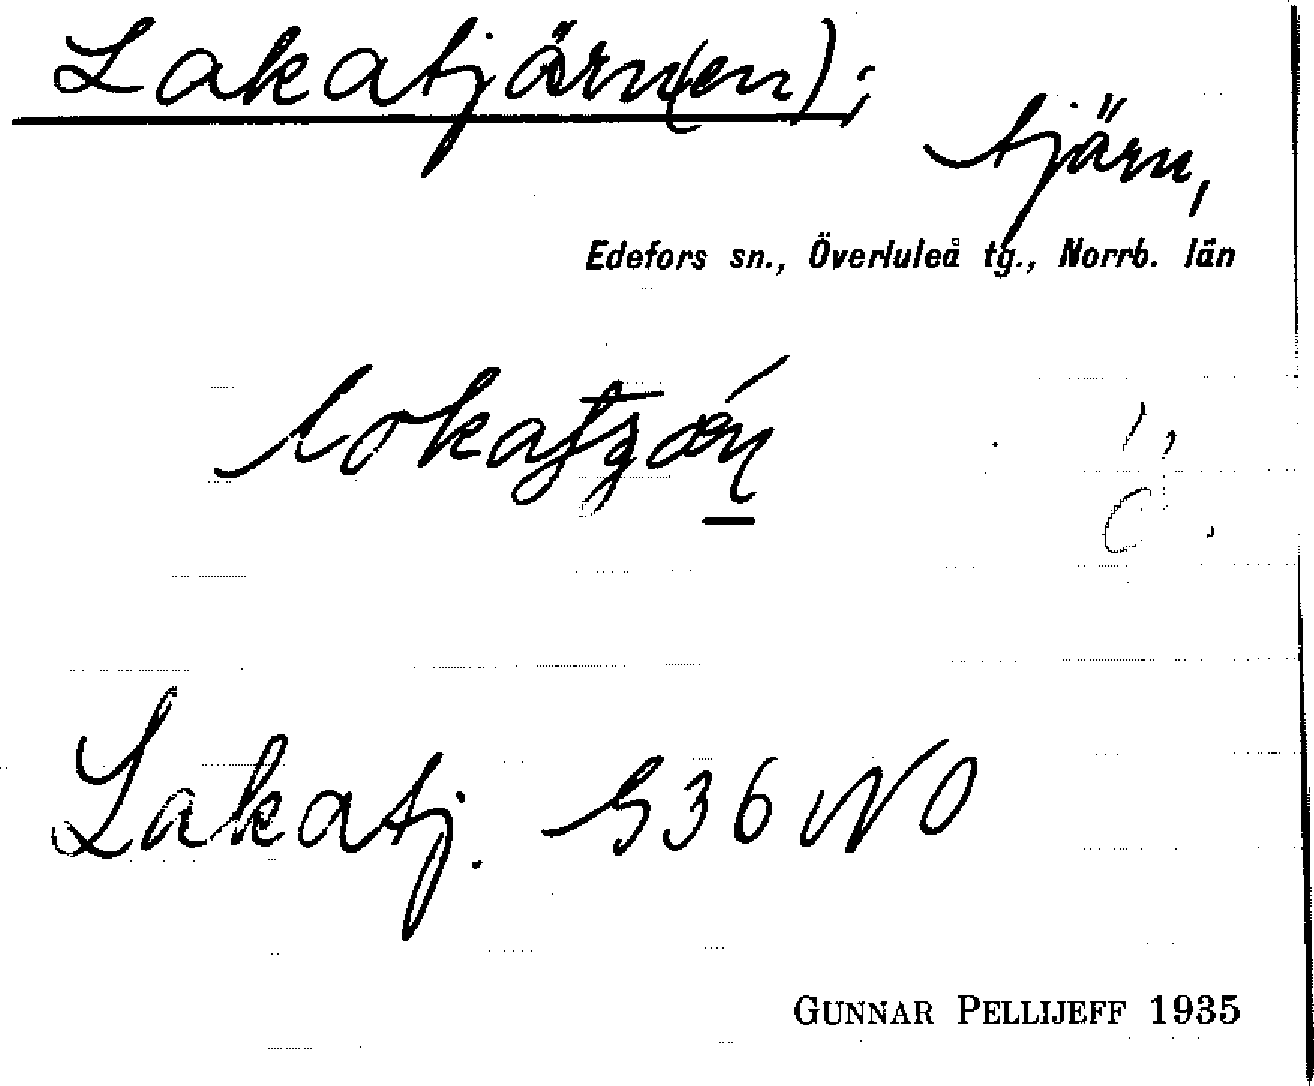 Lakatjärn(en);
tjärn,
Edefors sn., Överluleå tg., Norrb. län
Lakatj. 536 NO
GUNNAR PELLIJEFF 1935